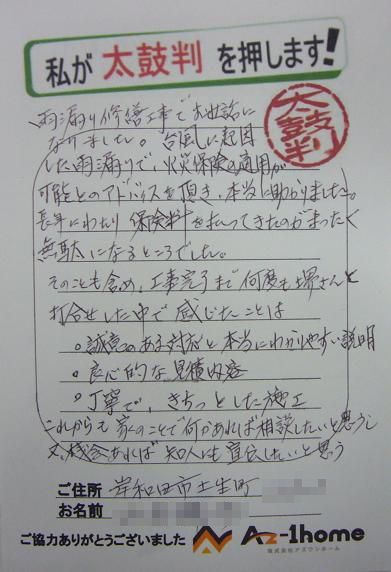 私が 太鼓判 を押します!
太鼓判
雨漏り修繕工事でお世話に
なりました。台風に起因
した雨漏りで、火災保険の適用が
可能とのアドバイスを頂き、本当に助かりました。
長年にわたり保険料を払ってきたのがまったく
無駄になるところでした。
そのことも含め、工事完了まで何度も堺さんと
打合せした中で感じたことは
。誠意のある対応と本当にわかりやすい説明
。良心的な見積内容
。丁寧で、きちっとした施工
これからも家のことで何かあれば相談したいと思うし
又、機会あれば知人にも宣伝したいと思う
ご住所 岸和田市土生町
お名前
ご協力ありがとうございました Az-1home
株式会社アズワンホーム